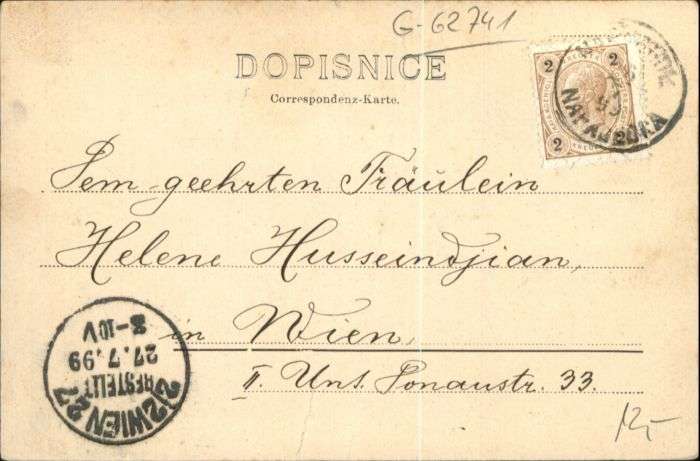 G-62741
DOPISNICE
Correspondenz-Karte.
2 2
2 2
99
NAPAJEDLA
Dem geehrten Fräulein
Helene Husseindjian,
in Wien,
II. Unt. Donaustr. 33.
2/2 WIEN 2/2
BESTELLT
27.7.99
8-10V
12,-